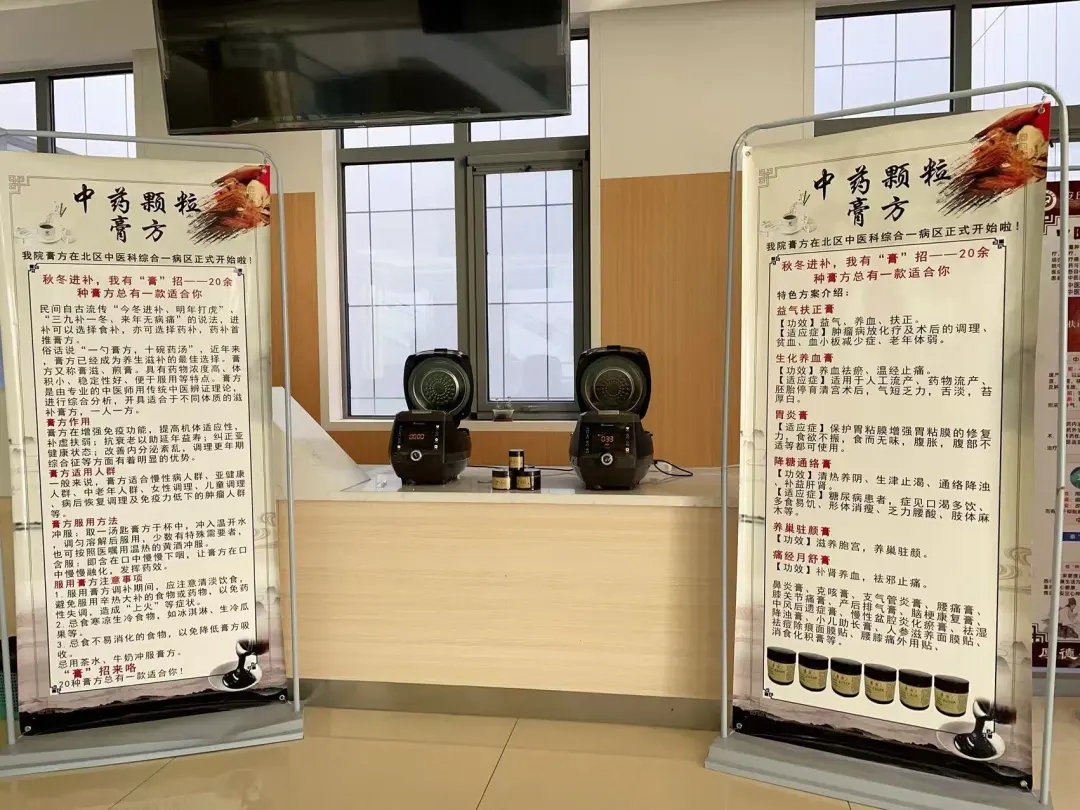 中药颗粒
膏方
我院膏方在北区中医科综合一病区正式开始啦！
秋冬进补，我有“膏”招——20余
种膏方总有一款适合你
民间自古流传“今冬进补、明年打虎”、
“三九补一冬、来年无病痛”的说法，进
补可以选择食补，亦可选择药补，药补首
推膏方。
俗话说“一勺膏方，十碗药汤”，近年来
，膏方已经成为养生滋补的最佳选择。膏
方又称膏滋、煎膏。具有药物浓度高、体
积小、稳定性好、便于服用等特点。膏方
是由专业的中医师用传统中医辨证理论，
进行综合分析，开具适合于不同体质的滋
补膏方，一人一方。
膏方作用
膏方在增强免疫功能，提高机体适应性，
补虚扶弱；抗衰老以助延年益寿；纠正亚
健康状态；改善内分泌紊乱，调理更年期
综合征等方面有着明显的优势。
膏方适用人群
一般来说，膏方适合慢性病人群，亚健康
人群、中老年人群、女性调理、儿童调理
、病后恢复调理及免疫力低下的肿瘤人群
等。
膏方服用方法
冲服：取一汤匙膏方于杯中，冲入温开水
，调匀溶解后服用，少数有特殊需要者，
也可按照医嘱用温热的黄酒冲服。
含服：即含在口中慢慢下咽，让膏方在口
中慢慢融化，发挥药效。
服用膏方注意事项
1.服用膏方调补期间，应注意清淡饮食，
避免服用辛热大补的食物或药物，以免药
性失调，造成“上火”等症状。
2.忌食寒凉生冷食物，如冰淇淋、生冷瓜
果等。
3.忌食不易消化的食物，以免降低膏方吸
收。
忌用茶水、牛奶冲服膏方。
“膏”招来咯
20种膏方总有一款适合你！
中药颗粒
膏方
我院膏方在北区中医科综合一病区正式开始啦！
秋冬进补，我有“膏”招——20余
种膏方总有一款适合你
特色方案介绍：
益气扶正膏
【功效】益气、养血、扶正。
【适应症】肿瘤病放化疗及术后的调理、
贫血、血小板减少症、老年体弱。
生化养血膏
【功效】养血祛瘀、温经止痛。
【适应症】适用于人工流产、药物流产、
胚胎停育清宫术后，气短乏力，舌淡，苔
厚白。
胃炎膏
【适应症】保护胃粘膜增强胃粘膜的修复
力，食欲不振，食而无味，腹胀，腹部不
适等都可使用。
降糖通络膏
【功效】清热养阴、生津止渴、通络降浊
、补益肝肾。
【适应症】糖尿病患者，症见口渴多饮、
多食易饥、形体消瘦、乏力腰酸、肢体麻
木等。
养巢驻颜膏
【功效】滋养胞宫，养巢驻颜。
痛经月舒膏
【功效】补肾养血，祛邪止痛。
鼻炎膏、克咳膏、支气管炎膏、腰痛膏、
膝关节痛膏、产后排气膏、脑梗康复膏、
中风后遗症膏、慢性盆腔炎化瘀膏、祛湿
降浊膏、小儿助长膏、人参滋养面膜贴、
祛痘除痕面膜贴、腰膝痛外用贴、
消食化积膏等。
厚德